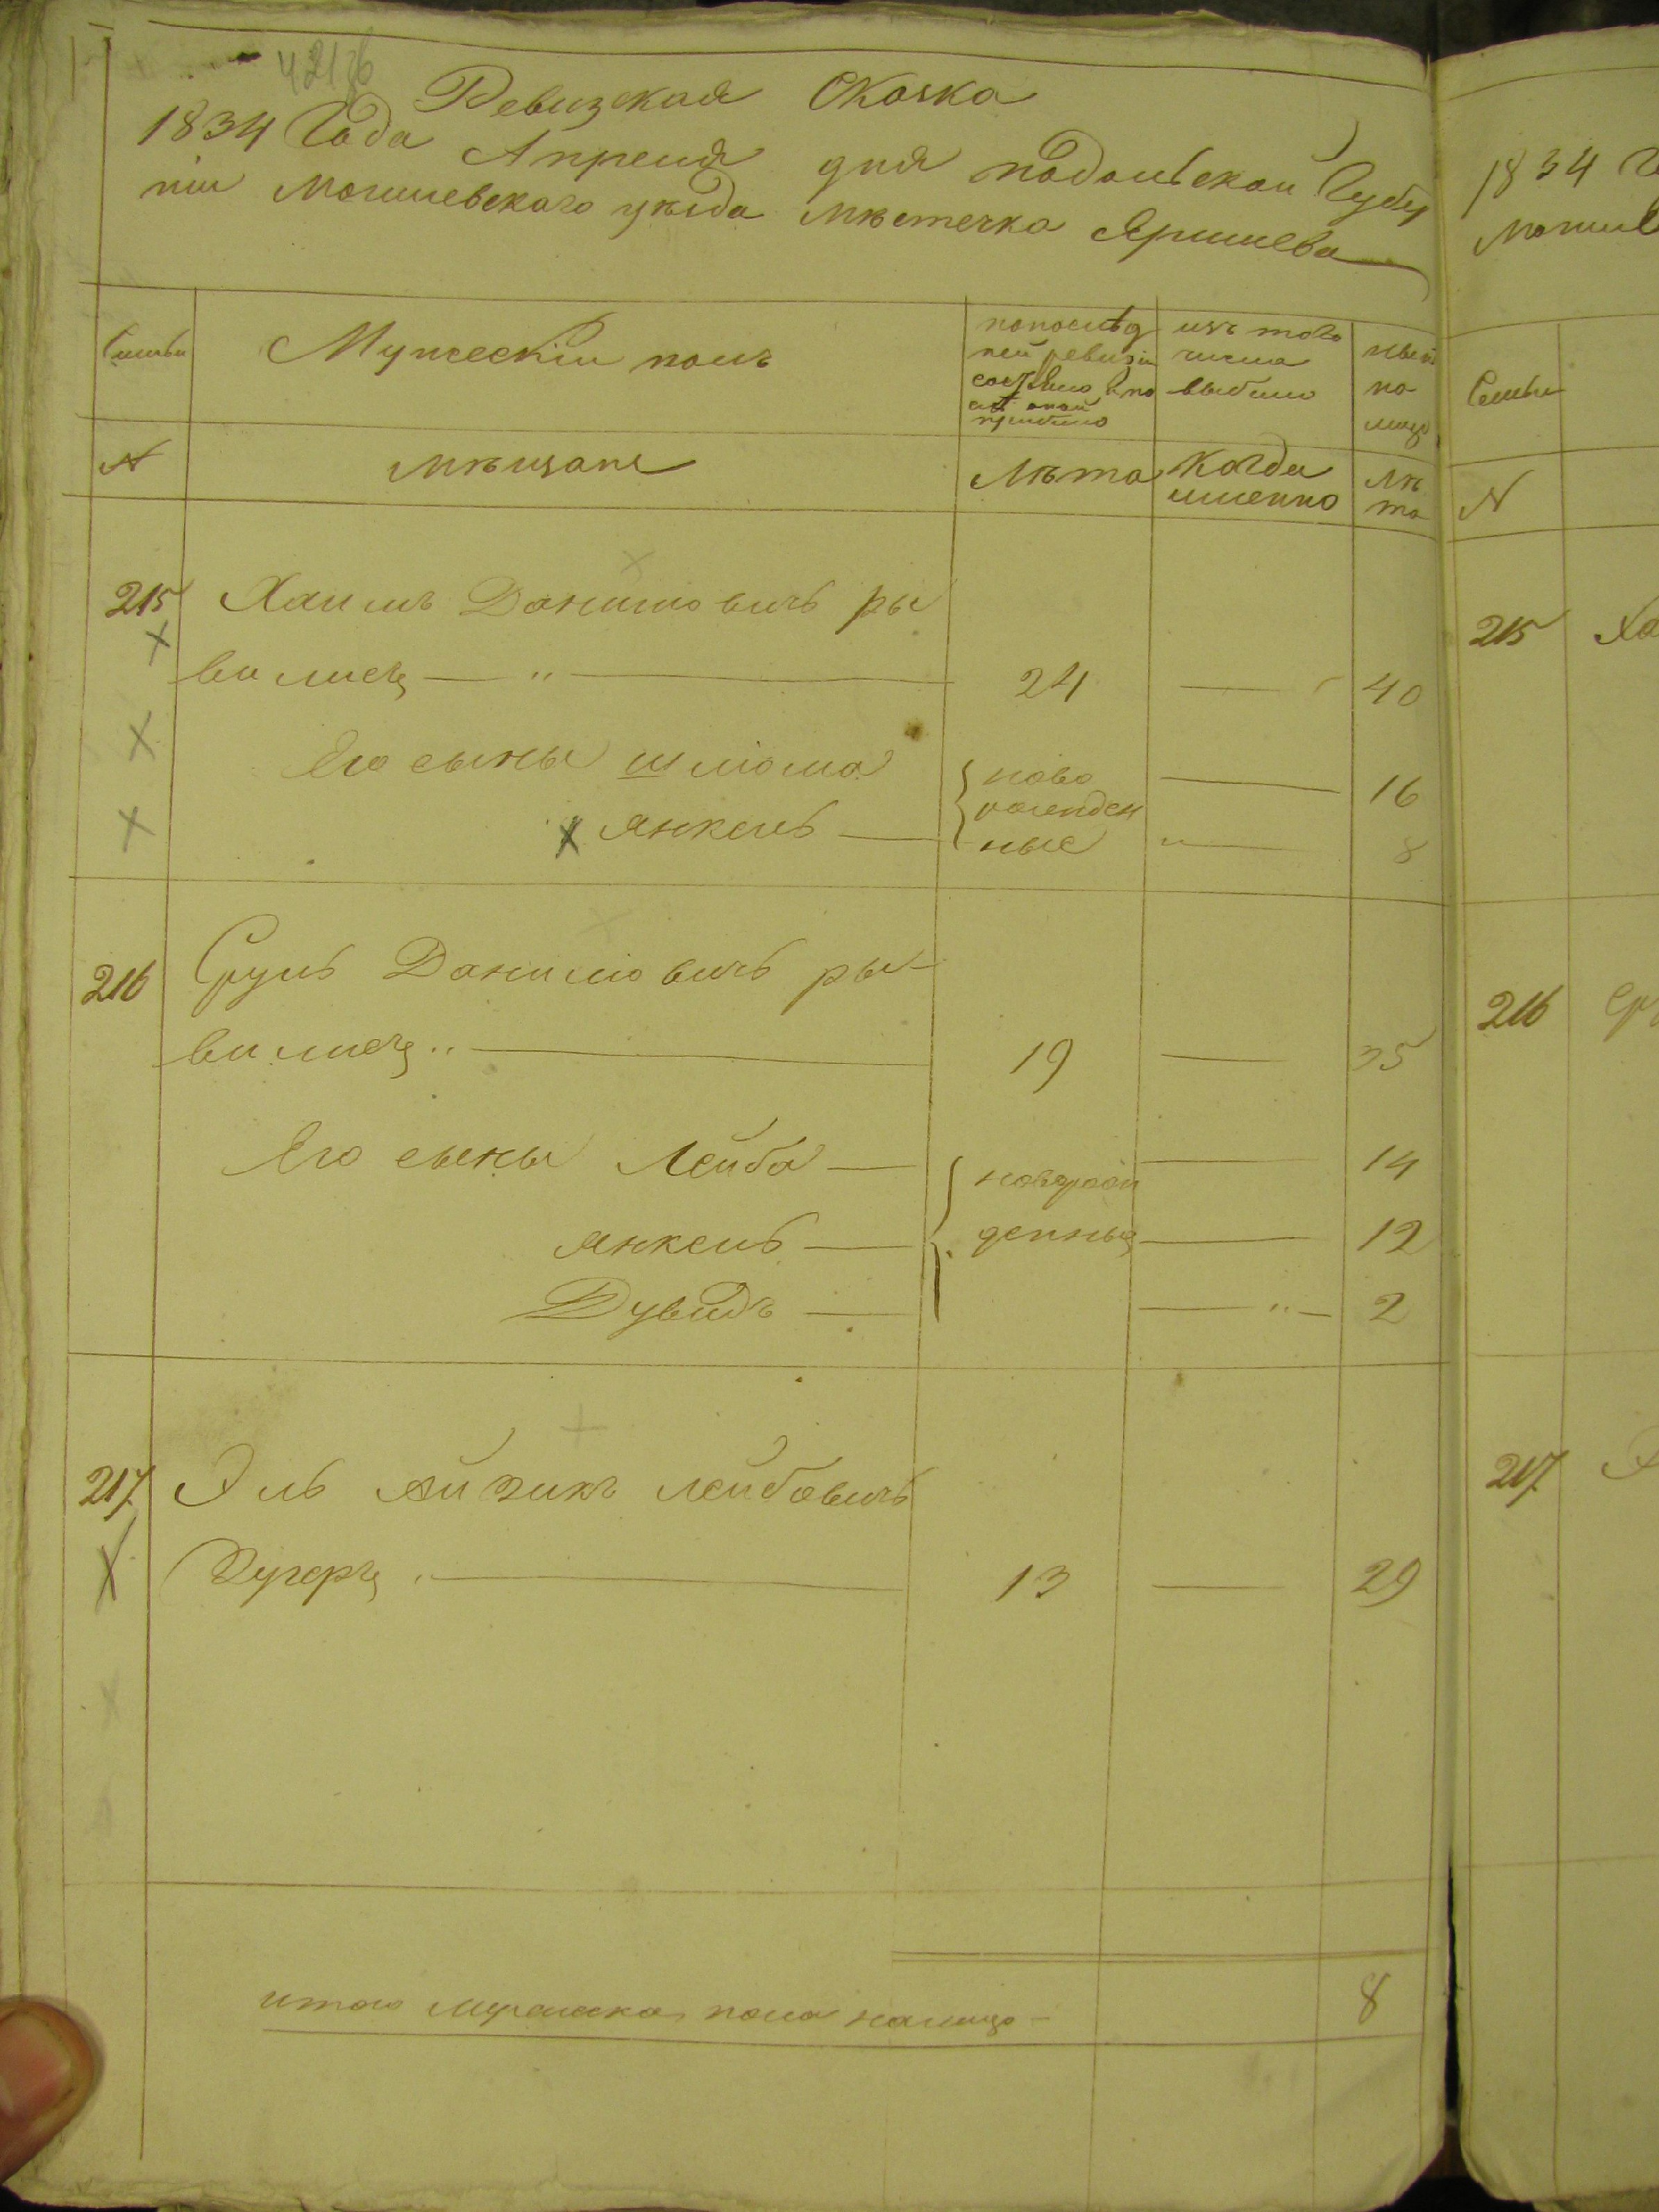 Ревизская Сказка
1834 Года Апреля дня подольской Губер
ніи могилевскаго уѣзда мѣстечка Яришева
Семьи
Мужескій полъ
по послѣд
ней ревизіи
состояло и по
слѣ оной
прибыло
изъ того
числа
выбыло
нынѣ
на
лицо
N
мѣщане
Лѣта
Когда
именно
Лѣ
та
215 Хаимъ Даниловичъ ры
вилисъ — " — 24 — 40
Его сыны шліома ново — 16
янкель — рожден
ные " — 8
216 Сруль Даниловичъ ры-
вилисъ " — 19 — 35
Его сыны Лейба — новорож — 14
янкель — денныя — 12
Дувидъ — — " — 2
217 Эль Айзикъ лейбовичъ
13 — 29
итого мужеска пола налицо — 8
1834 Г
могилев
Семьи
N
215 Ха
216 Ср
217 Э